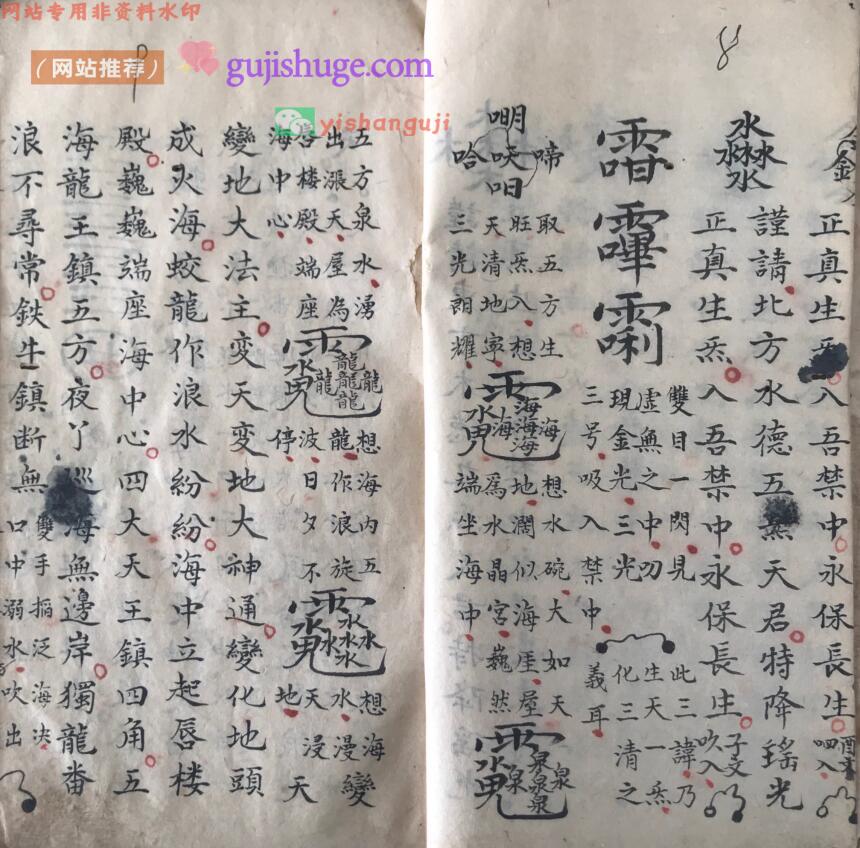 网站专用非资料水印
（网站推荐）
gujishuge.com
yishanguji
8
9
金
正真生炁入吾禁中永保長生
酉文
吸入
謹請北方水德五炁天君特降瑤光
水
水林水
水
正真生炁入吾禁中永保長生
子文
吹入
雙目一閃見
虛無之中叨
現金光三光
三号吸入禁中
此三諱乃
生天一炁
化三清之
義耳
明
哈 吷 啼
呬
取五方生
旺炁入想
天清地寧
三光朗耀
海
海海海
海
想水碗大如天
地濶似海厓屋
爲水晶宮巍然
端坐海中
泉
泉泉泉
泉
五方泉水湧
出漲天屋為
唇楼殿端座
海中心
龍
龍龍龍
龍
想海内五
龍作浪旋
波日夕不
停
水
水水水
水
想海
水漫
天浸
地
變天
變地大法主変天変地大神通變化地頭
成火海蛟龍作浪水紛紛海中立起唇楼
殿巍巍端座海中心四大天王鎮四角五
海龍王鎮五方夜丫巡海無邊岸獨龍番
浪不尋常鉄牛鎮断無
雙手搯泛海决
口中溺水吹出